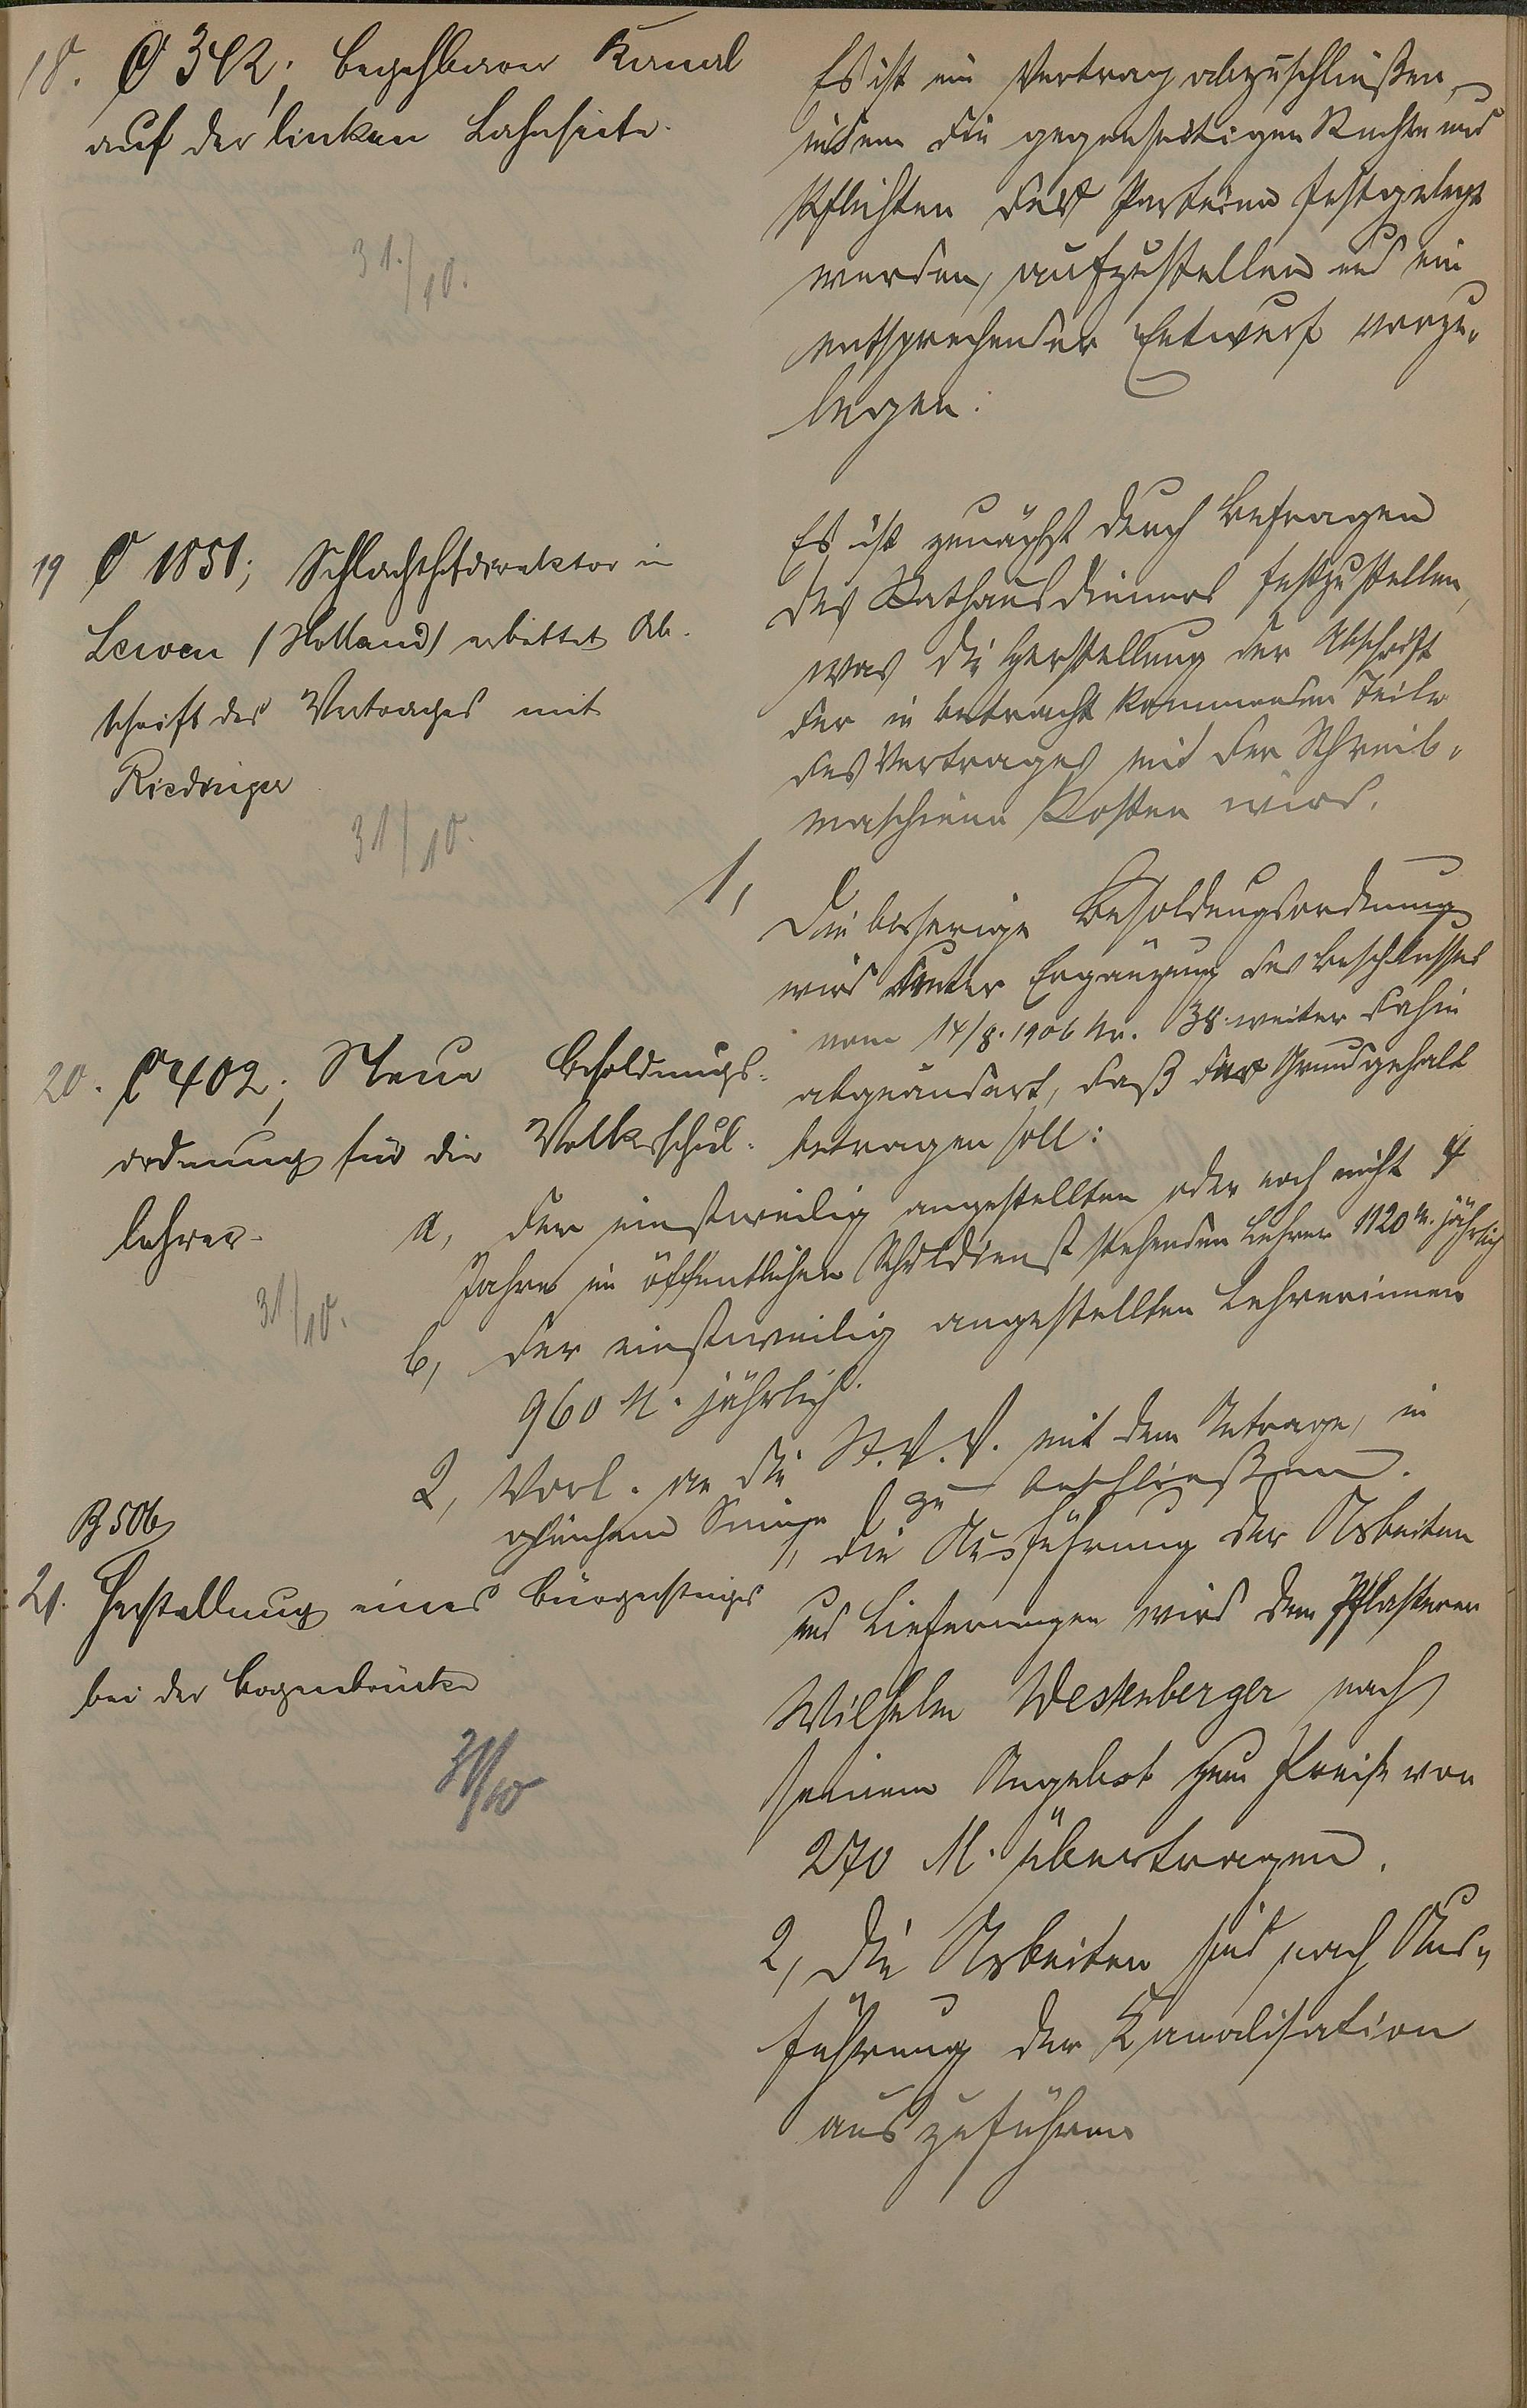 18. C 342; begehbarer Kanal
auf der linken Lahnseite.
31./10.
Es ist ein Vertrag abzuschließen,
indem die gegenseitigen Rechte und
Pflichten der Parteien festgelegt
werden, aufzustellen und ein
entsprechender Entwurf vorzu-
legen.
19 C 1851; Schlachthofdirektor in
(Holland) erbittet Ab-
schrift des Vertrages mit
Riedinger
31/10.
Es ist zunächst durch Befragen
des Rathausdieners festzustellen,
was die Herstellung der Abschrift
der in betracht kommenden Teile
des Vertrages mit der Schreib-
maschine kosten wird.
20. C 402; Neue Besoldungs-
ordnung für die Volksschul-
lehrer.
31/10.
1, Die bisherige Besoldungsordnung
wird unter Ergänzung des Beschlusses
vom 14/8. 1906 Nr. 38 weiter dahin
abgeändert, daß das Grundgehalt
betragen soll:
a, der einstweilig angestellten oder noch nicht 4
Jahre im öffentlichen Schuldienst stehenden Lehrer 1120 M. jährlich
b, der einstweilig angestellten Lehrerinnen
960 M. jährlich.
2, Vorl. an die St. V. V. mit dem Antrage, in
gleichem Sinne zu beschließen.
B 506
21. Herstellung eines Bürgersteiges
bei der Bogenbrücke
31/10
1, Die Ausführung der Arbeiten
und Lieferungen wird dem Pflasterer
Wilhelm Westenberger nach
seinem Angebot zum Preise von
270 M. übertragen.
2, Die Arbeiten sind nach Aus-
führung der Kanalisation
auszuführen